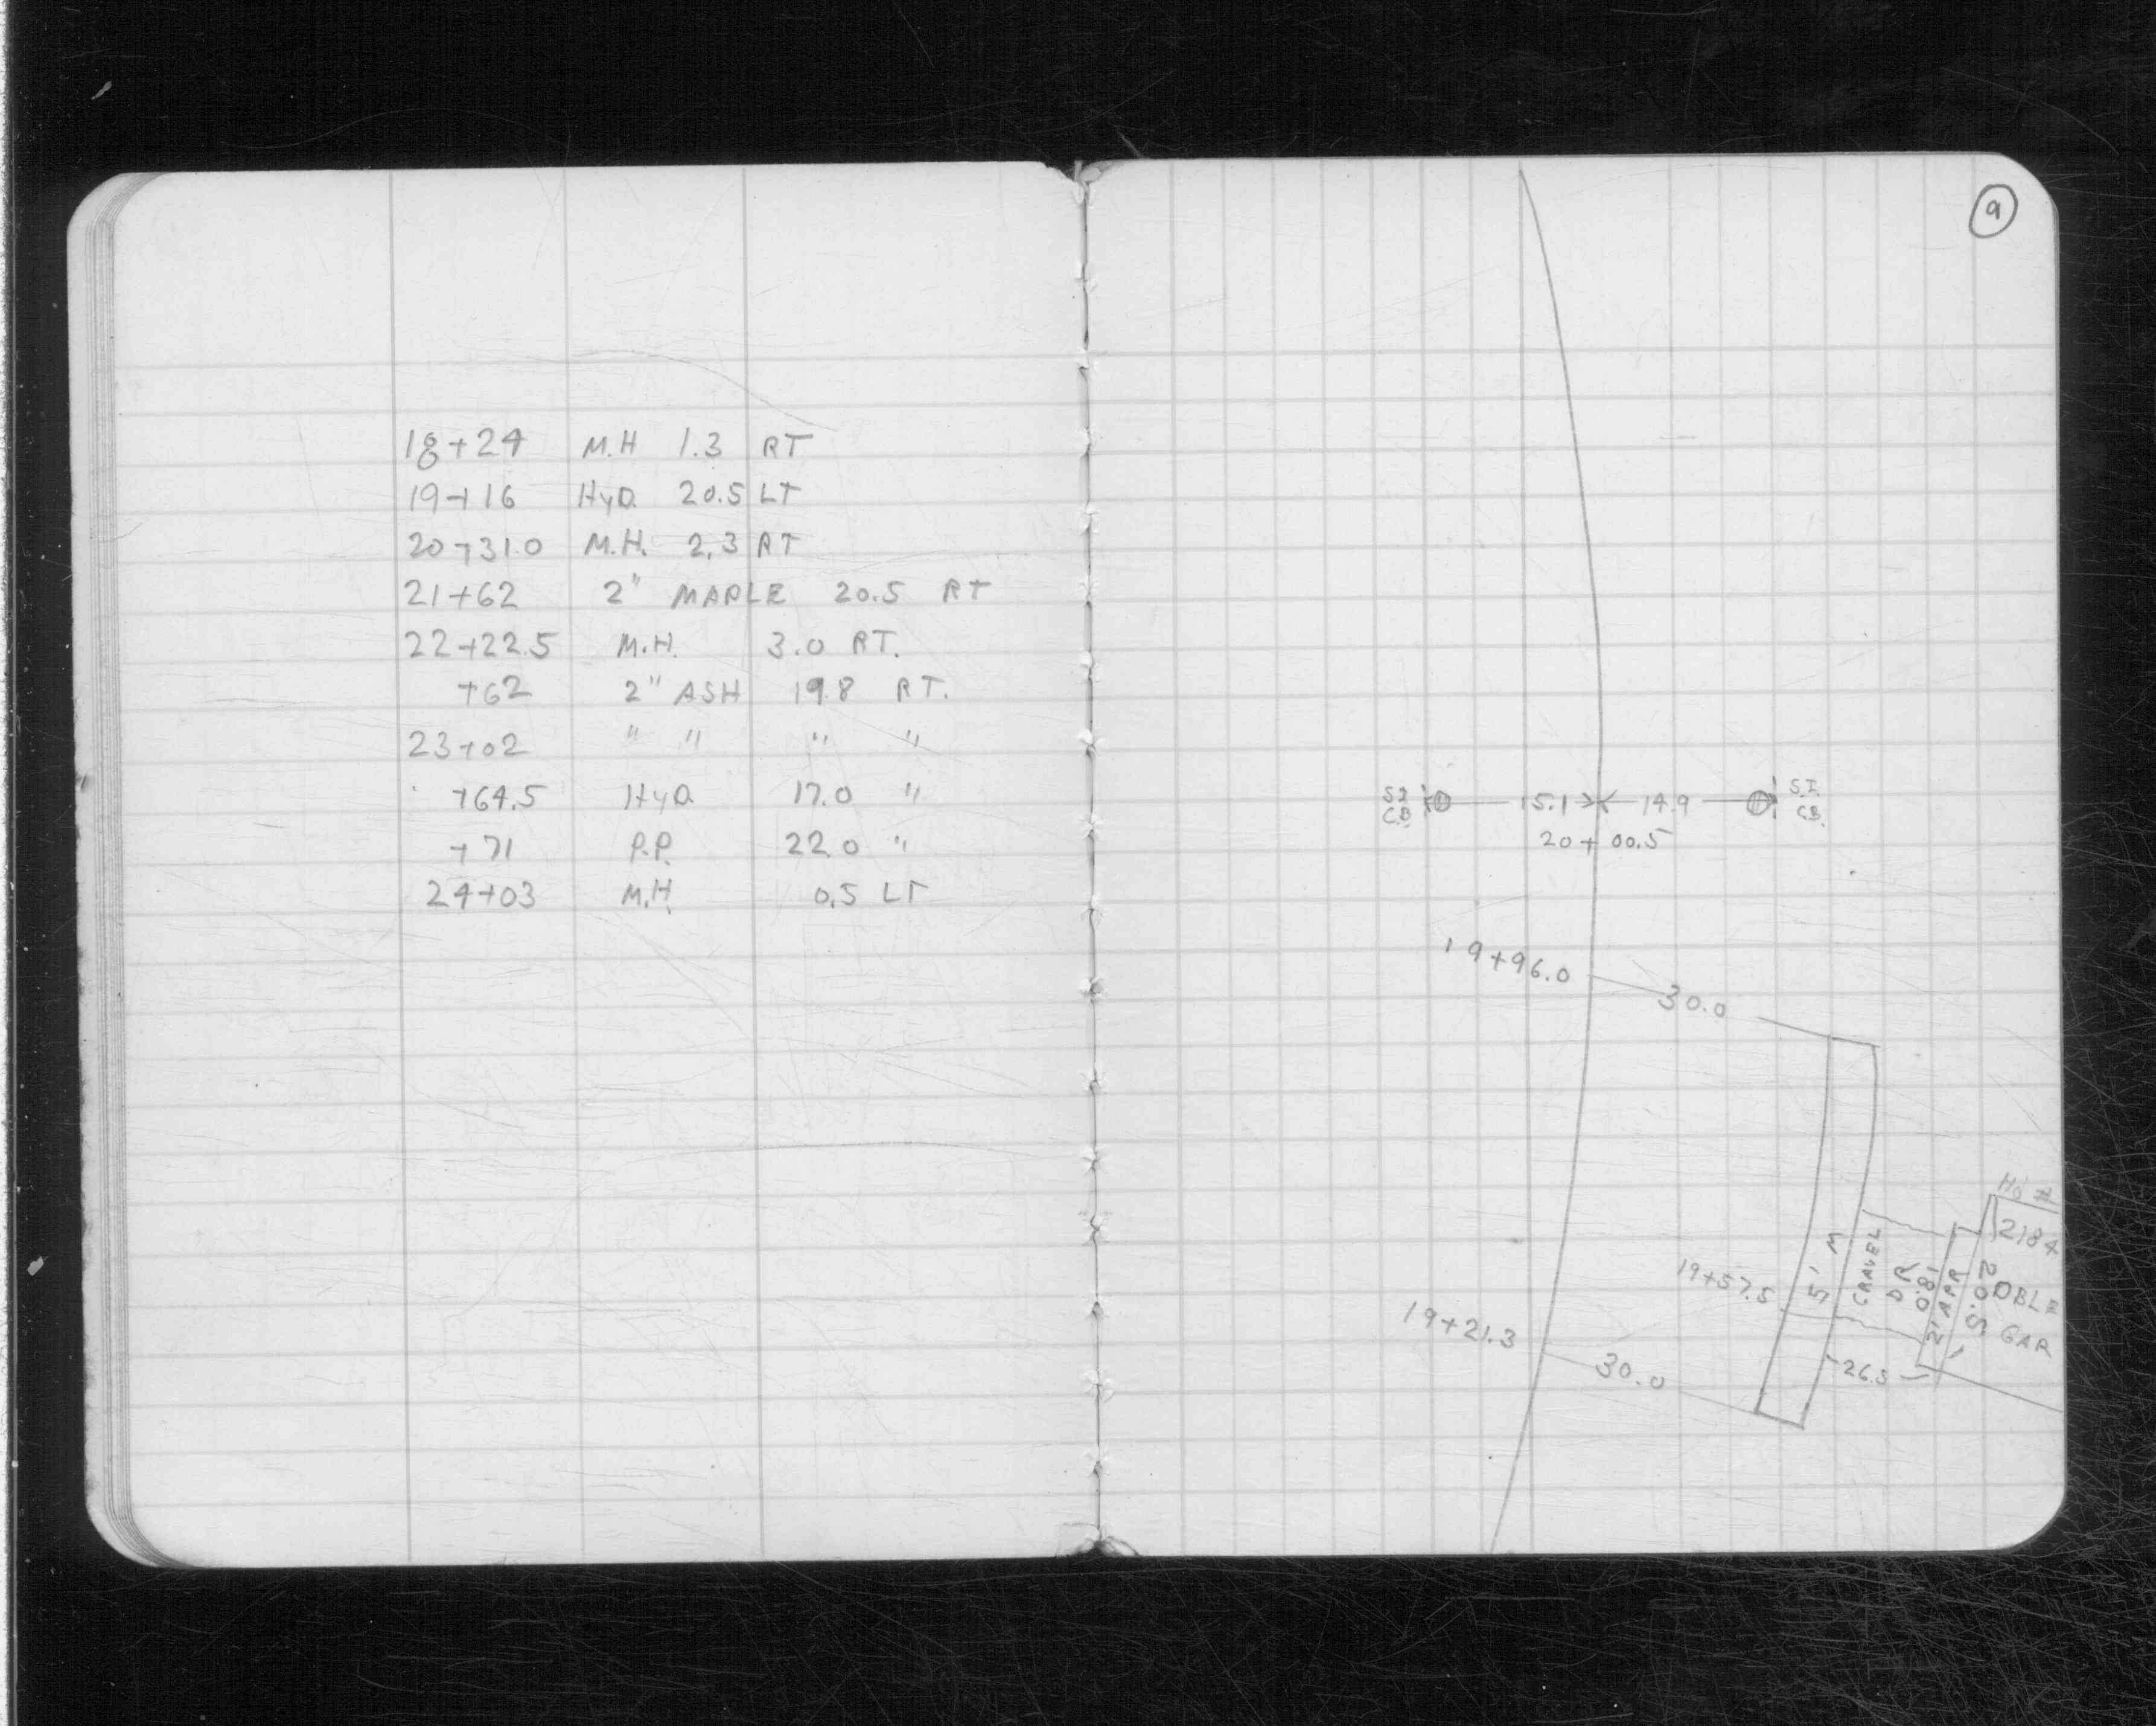 18+24 M.H 1.3 RT
19+16 HYD. 20.5 LT
20+31.0 M.H. 2.3 RT
21+62 2" MAPLE 20.5 RT
22+22.5 M.H. 3.0 RT.
+62 2" ASH 19.8 RT.
23+02 " " " "
+64.5 HYD. 17.0 "
+71 P.P. 22.0 "
24+03 M.H. 0.5 LT
9
S.I. C.B. 15.1 14.9 S.I. C.B.
20+00.5
19+96.0
30.0
HO #
2184
5' W
GRAVEL
DR
18.0
2' APR
20.5
DBLE
GAR
19+57.5
19+21.3
30.0
26.5